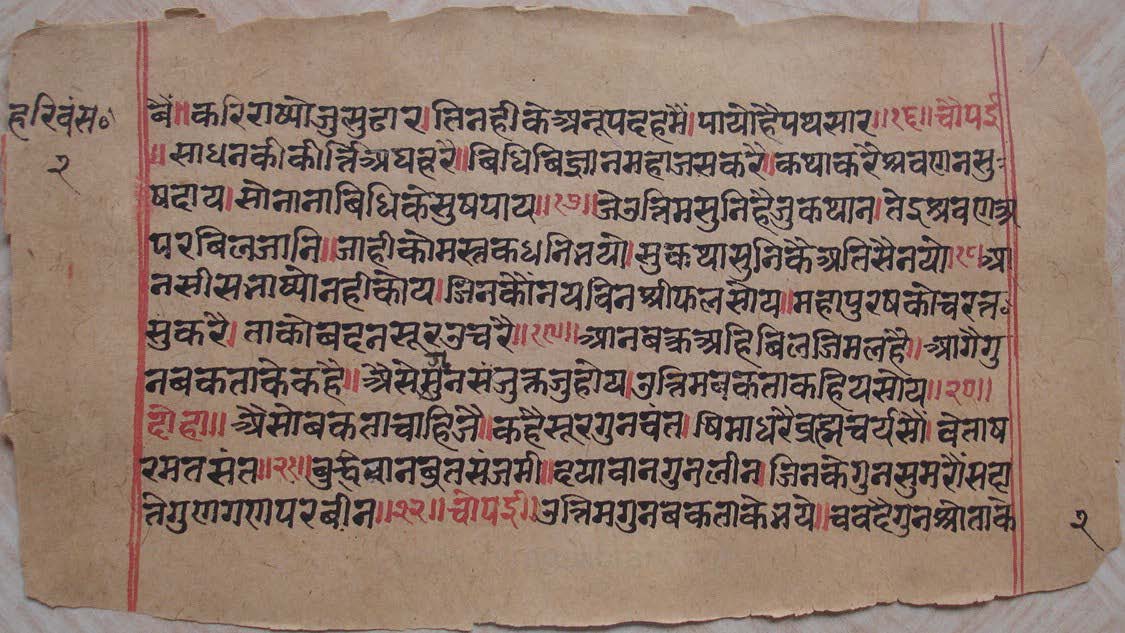 हरिवंस॰
२
बैं॥ करि राष्यो जु सुढार। तिनही के अनूपदह मैं। पायो है पथ सार॥१६॥ चौपई
॥ साधन की कीर्त्ति अघ हरै॥ बिधि बिज्ञान महा जस करै। कथा करै श्रवणन सु-
षदाय। सो नाना बिधि के सुष पाय॥१७॥ जे उत्तिम सुनि है जु कथान। तेइ श्रवण अ
पर बिल जानि॥ जाही को मस्तक धनि भयो। सुकथा सुनि कै अति सै नयो।१८। आ
न सीस भाष्यो नही कोय। जिन कौं नय विन श्रीफल सोय॥ महापुरष को चरत्न॰
सु करै। ताको बदन सूर उचरै॥१९॥ आन बक्र अहि बिल जिम लहै॥ आगै गु
न बकता के कहै॥ अैसे गुन संजुक्त जु होय। उत्तिम बकता कहिय सोय॥२०॥
दोहा॥ अैसो बकता चाहिजै॥ कहै सूर गुनवंत। षिमा धरै ब्रह्मचर्य सौं। वेता ष
रमत संत॥२१॥ बुद्धवान ब्रुत संजमी॥ दयावान गुन लीन। जिनके गुन सुमरौं सदा
ते गुण गण परबीन॥२२॥ चौपई॥ उत्तिम गुन बकता के भये॥ चवदै गुन श्रोता के
२